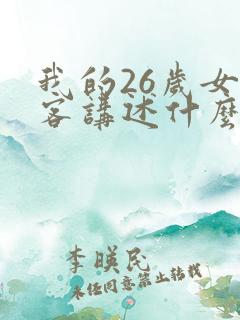 我的26歲女
客講述什麼
李暎民
未任同意禁止转载